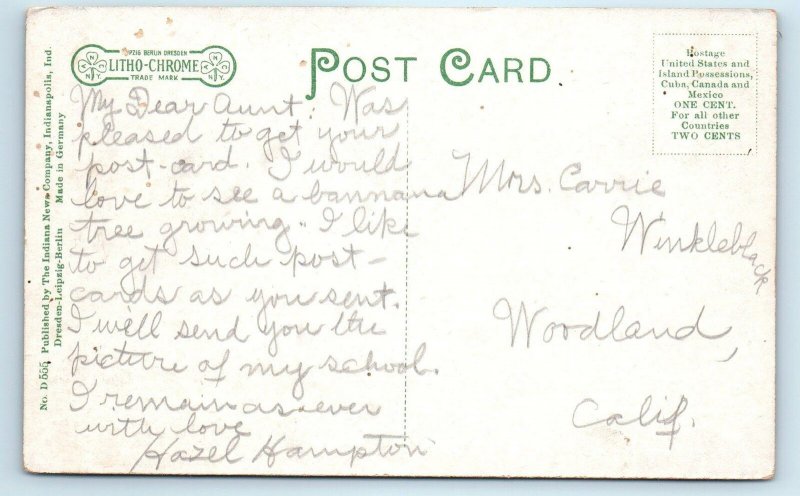 No. D 555, Published by The Indiana News Company, Indianapolis, Ind.
Dresden-Leipzig-Berlin Made in Germany
PZIG BERLIN DRESDEN
LITHO-CHROME
TRADE MARK
POST CARD
Postage
United States and
Island Possessions,
Cuba, Canada and
Mexico
ONE CENT.
For all other
Countries
TWO CENTS
My Dear Aunt: Was
pleased to get your
post-card. I would
love to see a bannana
tree growing. I like
to get such post-
cards as you sent.
I will send you the
picture of my school.
I remain as ever
with love
Hazel Hampton
Mrs. Carrie
Winkleblack
Woodland,
Calif.